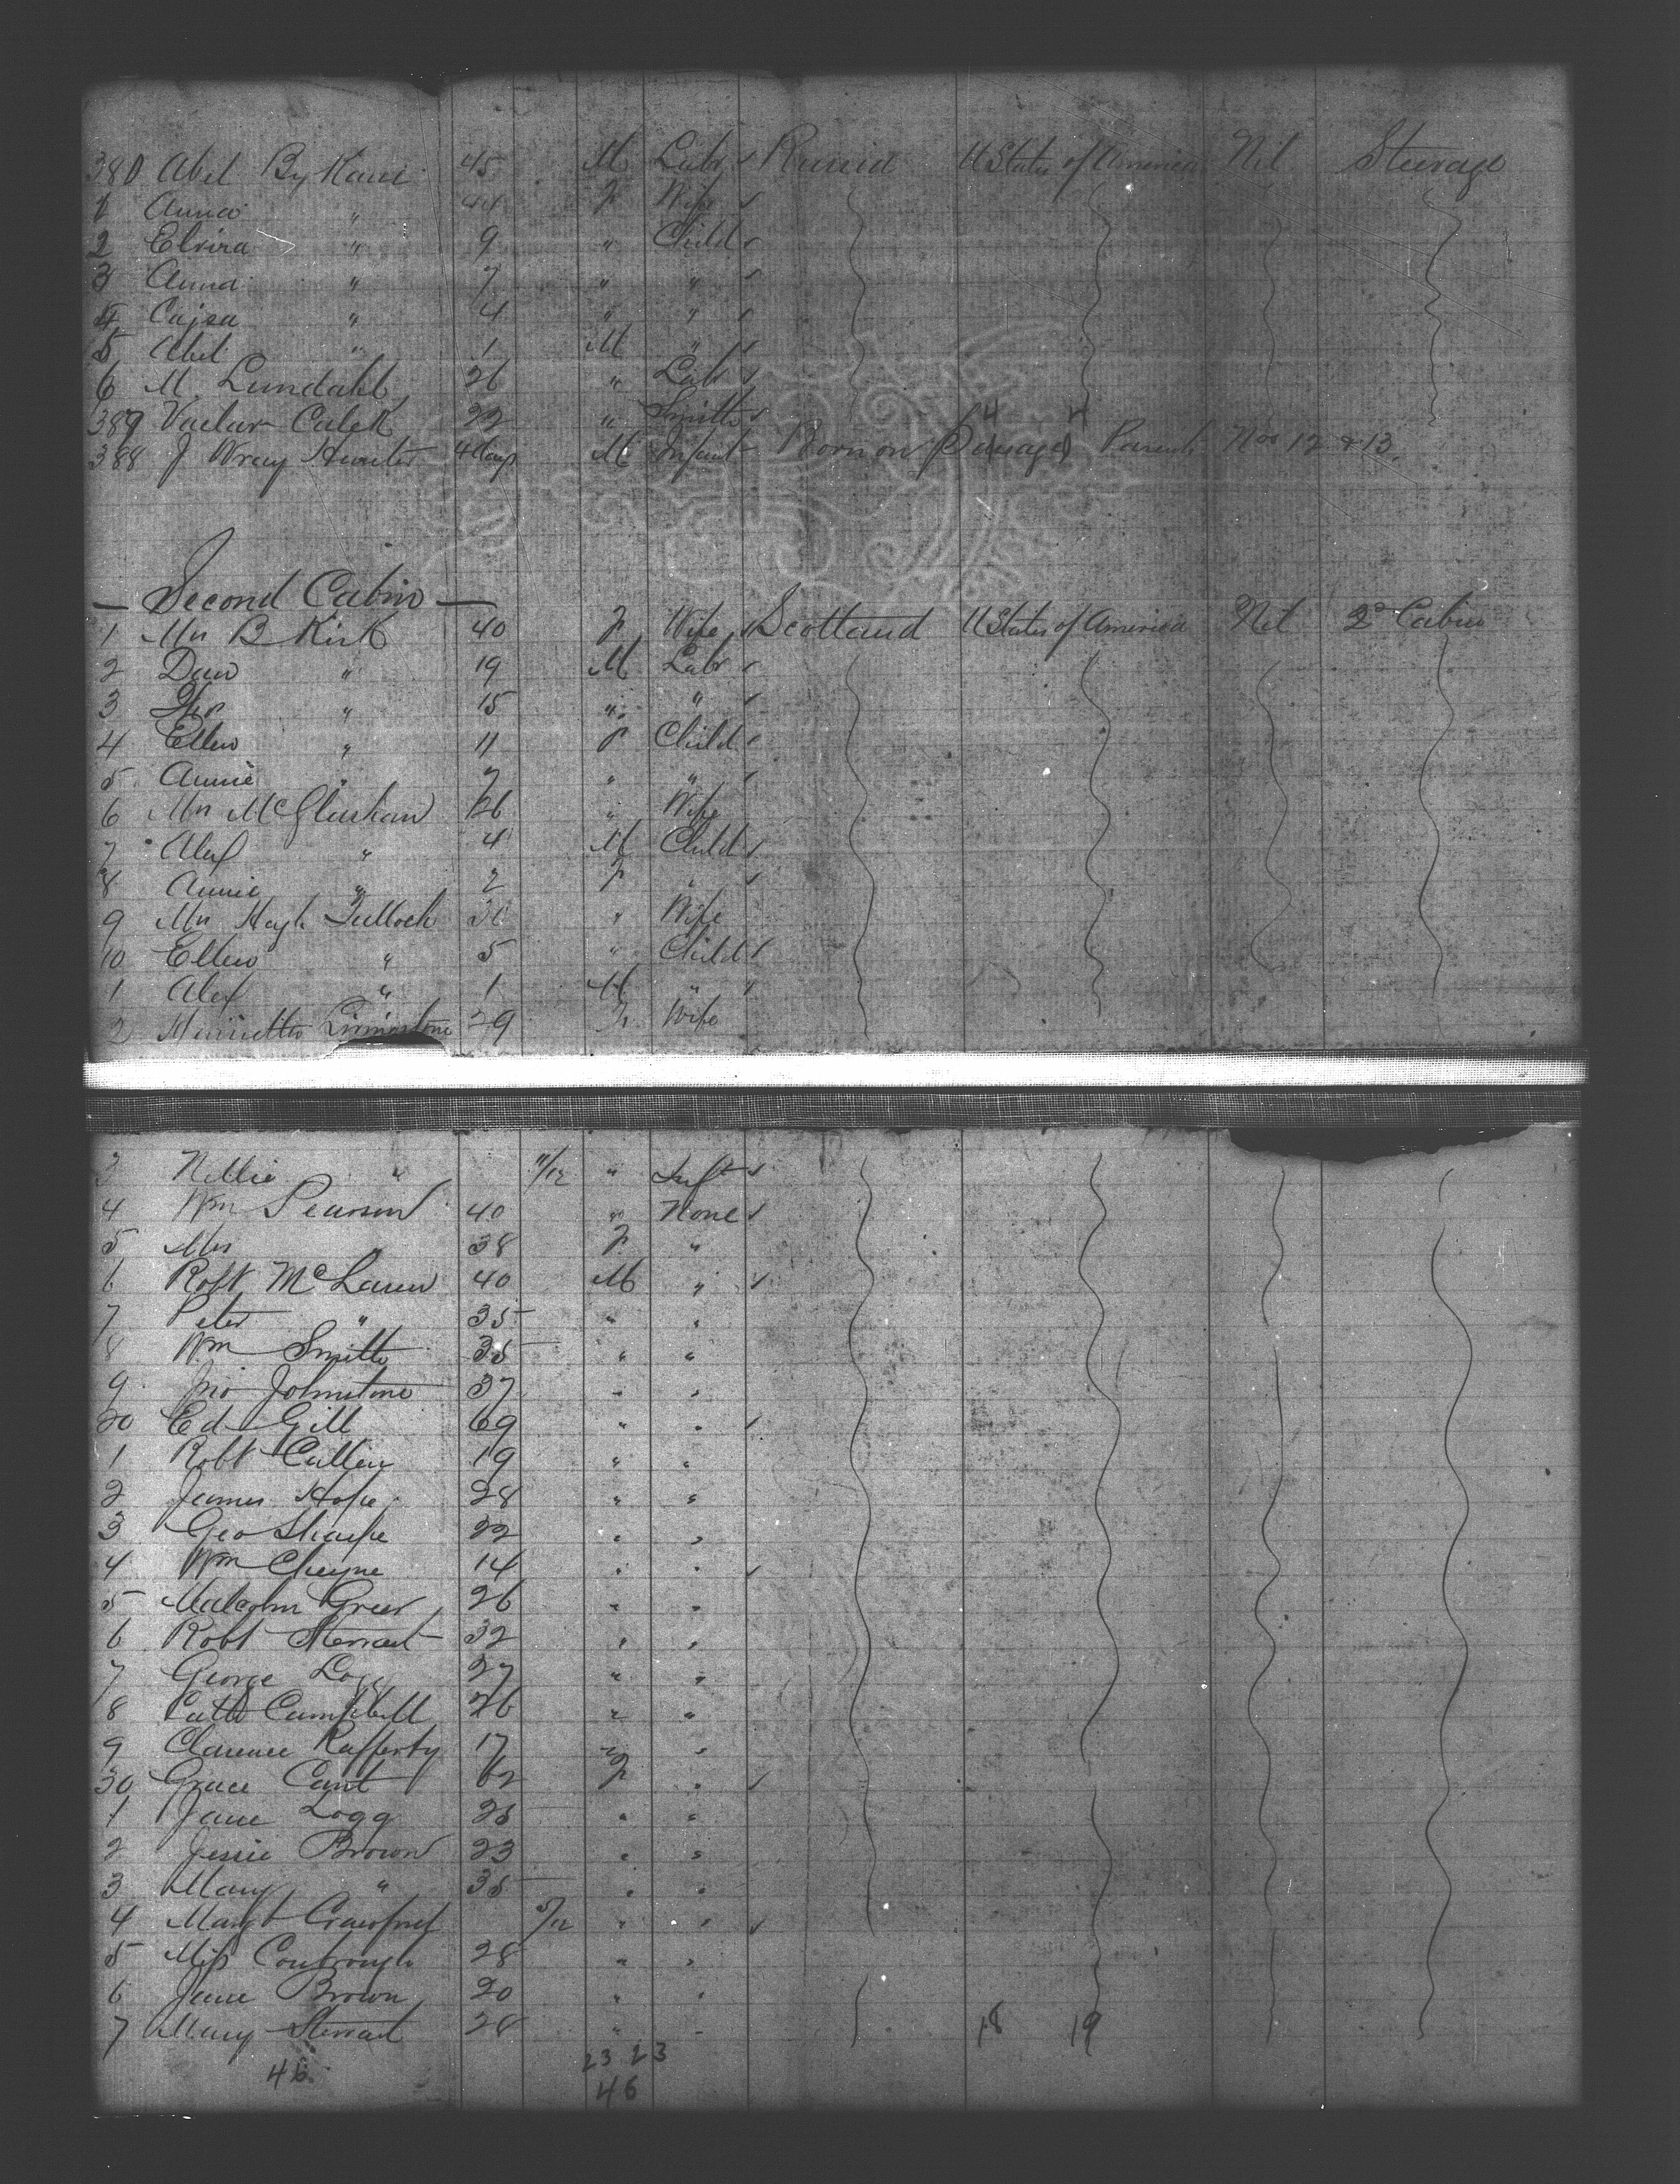 380 Abel By Kani 45 M Labr ✓ Russia U States of America Nil Steerage
1 Anna " 44 F Wife ✓
2 Elvira " 9 " Child ✓
3 Anna " 7 " " ✓
4 Cajsa " 4 " " ✓
5 Abel " 1 M " ✓
6 M. Lundahl 26 " Labr ✓
389 Vaclav Calek 22 " Smith ✓
388 J Wray Hunter 4 days M Infant Born on Passage Parents Nos 12 & 13.
— Second Cabin —
1 Mrs B Kirk 40 F Wife ✓ Scotland U States of America Nil 2d Cabin
2 Dan " 19 M Labr ✓
3 " 15 " " ✓
4 Ellen " 11 F Child ✓
5 Annie " 7 " " ✓
6 Mrs McGlashan 26 " Wife
7 Alex " 4 M Child ✓
8 Annie " 2 F " ✓
9 Mrs Hugh Tulloch 30 " Wife
10 Ellen " 5 " Child ✓
1 Alex " 1 M " ✓
2 Henrietta Livingstone 29 F Wife
3 Nellie " 11/12 " Inft ✓
4 Wm Pearson 40 " None ✓
5 Mrs 38 F "
6 Robt McLaren 40 M " ✓
7 Peter " 35 " "
8 Wm Smith 35 " "
9 Jno Johnstone 37 " "
20 Ed Gill 69 " " ✓
1 Robt Cullen 19 " "
2 James Hope 28 " "
3 Geo Sharpe 22 " "
4 Wm Cheyne 14 " " ✓
5 Malcolm Greer 26 " "
6 Robt Stewart 32 " "
7 George Logg 27 " "
8 Campbell 26 " "
9 Clarence Rafferty 17 " "
30 Grace Cant 62 F " ✓
1 Jane Logg 25 " "
2 Jessie Brown 23 " "
3 Mary " 35 " "
4 Margt Crawford 5/12 " " ✓
5 Miss Coubrough 28 " "
6 Jane Brown 20 " "
7 Mary Stewart 28 " " 18 19
46 23 23
46